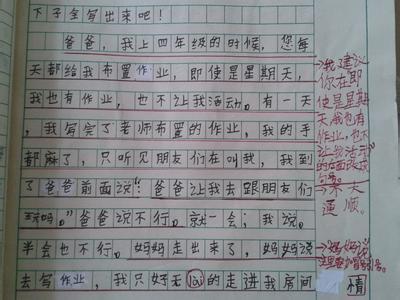 下子全写出来吧！
爸爸，我上四年级的时候，您每
天都给我布置作业，即使是星期天，
我也有作业，也不让我活动。有一天
，我写完了老师布置的作业，我的手
都麻了，只听见朋友们在叫我，我到
了爸爸前面说："爸爸让我去跟朋友们
玩吗。"爸爸说不行。就一会；我说。
半会也不行。妈妈走出来了，妈妈说
去写作业，我只好无liáo的走进我房间
情
我建议
你在即
使是星期
天我也有
作业，也不
让我活动
的后面改成
句号。
不太
通顺。
妈妈说